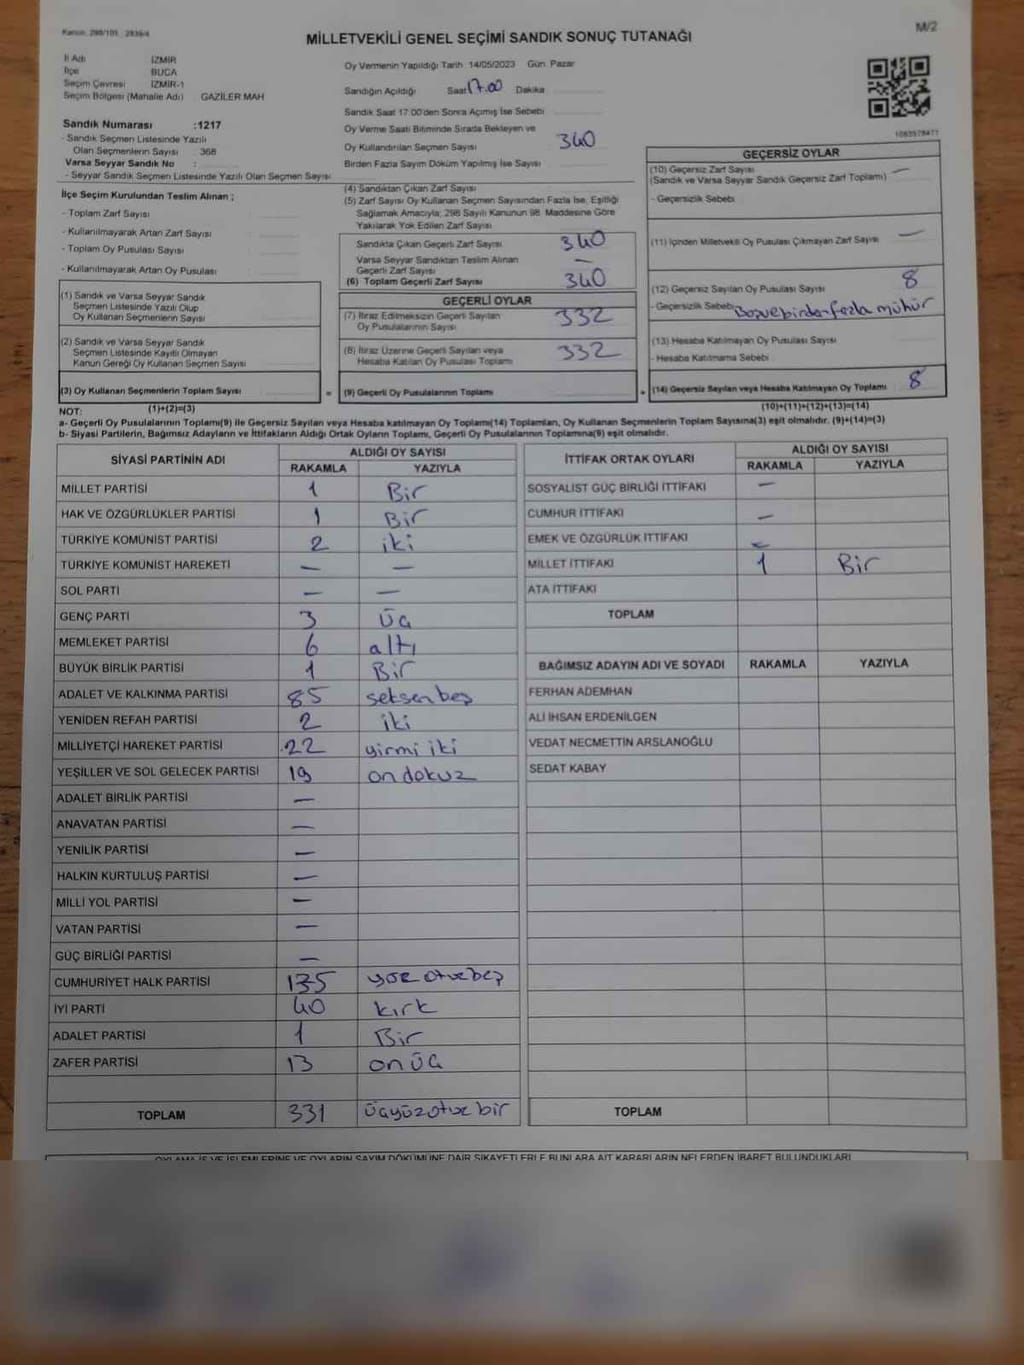 Kanun: 298/105 2839/4
M/2
MİLLETVEKİLİ GENEL SEÇİMİ SANDIK SONUÇ TUTANAĞI
İl Adı İZMİR
İlçe BUCA
Seçim Çevresi İZMİR-1
Seçim Bölgesi (Mahalle Adı) GAZİLER MAH
Sandık Numarası :1217
- Sandık Seçmen Listesinde Yazılı
Olan Seçmenlerin Sayısı : 368
Varsa Seyyar Sandık No :
- Seyyar Sandık Seçmen Listesinde Yazılı Olan Seçmen Sayısı
Oy Vermenin Yapıldığı Tarih 14/05/2023 Gün: Pazar
Sandığın Açıldığı Saat 17.00 Dakika
Sandık Saat 17:00'den Sonra Açılmış İse Sebebi
Oy Verme Saati Bitiminde Sırada Bekleyen ve
Oy Kullandırılan Seçmen Sayısı 340
Birden Fazla Sayım Döküm Yapılmış İse Sayısı
1083578477
İlçe Seçim Kurulundan Teslim Alınan ;
- Toplam Zarf Sayısı
- Kullanılmayarak Artan Zarf Sayısı
- Toplam Oy Pusulası Sayısı
- Kullanılmayarak Artan Oy Pusulası
(1) Sandık ve Varsa Seyyar Sandık
Seçmen Listesinde Yazılı Olup
Oy Kullanan Seçmenlerin Sayısı
(2) Sandık ve Varsa Seyyar Sandık
Seçmen Listesinde Kayıtlı Olmayan
Kanun Gereği Oy Kullanan Seçmen Sayısı
(3) Oy Kullanan Seçmenlerin Toplam Sayısı
(1)+(2)=(3)
(4) Sandıktan Çıkan Zarf Sayısı
(5) Zarf Sayısı Oy Kullanan Seçmen Sayısından Fazla İse, Eşitliği
Sağlamak Amacıyla; 298 Sayılı Kanunun 98. Maddesine Göre
Yakılarak Yok Edilen Zarf Sayısı
Sandıkta Çıkan Geçerli Zarf Sayısı 340
Varsa Seyyar Sandıktan Teslim Alınan
Geçerli Zarf Sayısı —
(6) Toplam Geçerli Zarf Sayısı 340
GEÇERLİ OYLAR
(7) İtiraz Edilmeksizin Geçerli Sayılan
Oy Pusulalarının Sayısı 332
(8) İtiraz Üzerine Geçerli Sayılan veya
Hesaba Katılan Oy Pusulası Toplamı 332
= (9) Geçerli Oy Pusulalarının Toplamı
GEÇERSİZ OYLAR
(10) Geçersiz Zarf Sayısı —
(Sandık ve Varsa Seyyar Sandık Geçersiz Zarf Toplamı)
- Geçersizlik Sebebi
(11) İçinden Milletvekili Oy Pusulası Çıkmayan Zarf Sayısı —
(12) Geçersiz Sayılan Oy Pusulası Sayısı 8
- Geçersizlik Sebebi birden fazla mühür
(13) Hesaba Katılmayan Oy Pusulası Sayısı
- Hesaba Katılmama Sebebi
+ (14) Geçersiz Sayılan veya Hesaba Katılmayan Oy Toplamı 8
(10)+(11)+(12)+(13)=(14)
NOT:
a- Geçerli Oy Pusulalarının Toplamı(9) ile Geçersiz Sayılan veya Hesaba katılmayan Oy Toplamı(14) Toplamları, Oy Kullanan Seçmenlerin Toplam Sayısına(3) eşit olmalıdır. (9)+(14)=(3)
b- Siyasi Partilerin, Bağımsız Adayların ve İttifakların Aldığı Ortak Oyların Toplamı, Geçerli Oy Pusulalarının Toplamına(9) eşit olmalıdır.
SİYASİ PARTİNİN ADI ALDIĞI OY SAYISI
RAKAMLA YAZIYLA
MİLLET PARTİSİ 1 Bir
HAK VE ÖZGÜRLÜKLER PARTİSİ 1 Bir
TÜRKİYE KOMÜNİST PARTİSİ 2 iki
TÜRKİYE KOMÜNİST HAREKETİ — —
SOL PARTİ — —
GENÇ PARTİ 3 Üç
MEMLEKET PARTİSİ 6 altı
BÜYÜK BİRLİK PARTİSİ 1 Bir
ADALET VE KALKINMA PARTİSİ 85 seksen beş
YENİDEN REFAH PARTİSİ 2 iki
MİLLİYETÇİ HAREKET PARTİSİ 22 yirmi iki
YEŞİLLER VE SOL GELECEK PARTİSİ 19 on dokuz
ADALET BİRLİK PARTİSİ —
ANAVATAN PARTİSİ —
YENİLİK PARTİSİ —
HALKIN KURTULUŞ PARTİSİ —
MİLLİ YOL PARTİSİ —
VATAN PARTİSİ —
GÜÇ BİRLİĞİ PARTİSİ —
CUMHURİYET HALK PARTİSİ 135 yüz otuz beş
İYİ PARTİ 40 kırk
ADALET PARTİSİ 1 Bir
ZAFER PARTİSİ 13 on üç
TOPLAM 331 Üçyüz otuz bir
İTTİFAK ORTAK OYLARI ALDIĞI OY SAYISI
RAKAMLA YAZIYLA
SOSYALİST GÜÇ BİRLİĞİ İTTİFAKI —
CUMHUR İTTİFAKI —
EMEK VE ÖZGÜRLÜK İTTİFAKI —
MİLLET İTTİFAKI 1 Bir
ATA İTTİFAKI
TOPLAM
BAĞIMSIZ ADAYIN ADI VE SOYADI RAKAMLA YAZIYLA
FERHAN ADEMHAN
ALİ İHSAN ERDENİLGEN
VEDAT NECMETTİN ARSLANOĞLU
SEDAT KABAY
TOPLAM
OYLAMA İŞ VE İŞLEMLERİNE VE OYLARIN SAYIM DÖKÜMÜNE DAİR ŞİKAYETLERLE BUNLARA AİT KARARLARIN NELERDEN İBARET BULUNDUKLARI